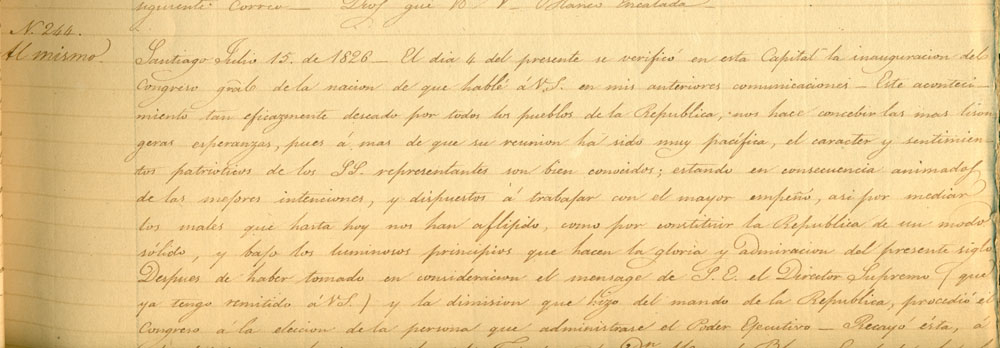 siguiente Correo — Dios gue á V. — Blanco Encalada —
N. 244.
Al mismo —
Santiago Julio 15. de 1826 — El dia 4 del presente se verificó en esta Capital la inauguracion del
Congreso gral de la nacion de que hablé á V.S. en mis anteriores comunicaciones — Este aconteci-
miento tan eficazmente deseado por todos los pueblos de la Republica, nos hace concebir las mas lison
geras esperanzas, pues á mas de que su reunion ha sido muy pacífica, el caracter y sentimien-
tos patrioticos de los SS. representantes son bien conocidos; estando en consecuencia animados
de las mejores intenciones, y dispuestos á trabajar con el mayor empeño, asi por mediar
los males que hasta hoy nos han aflijido, como por constituir la Republica de un modo
sólido, y bajo los luminosos principios que hacen la gloria y admiracion del presente siglo
Despues de haber tomado en consideracion el mensage de S.E. el Director Supremo (que
ya tengo remitido á V.S.) y la dimision que hizo del mando de la Republica, procedió el
Congreso á la eleccion de la persona que administrase el Poder Ejecutivo — Recayó ésta, á